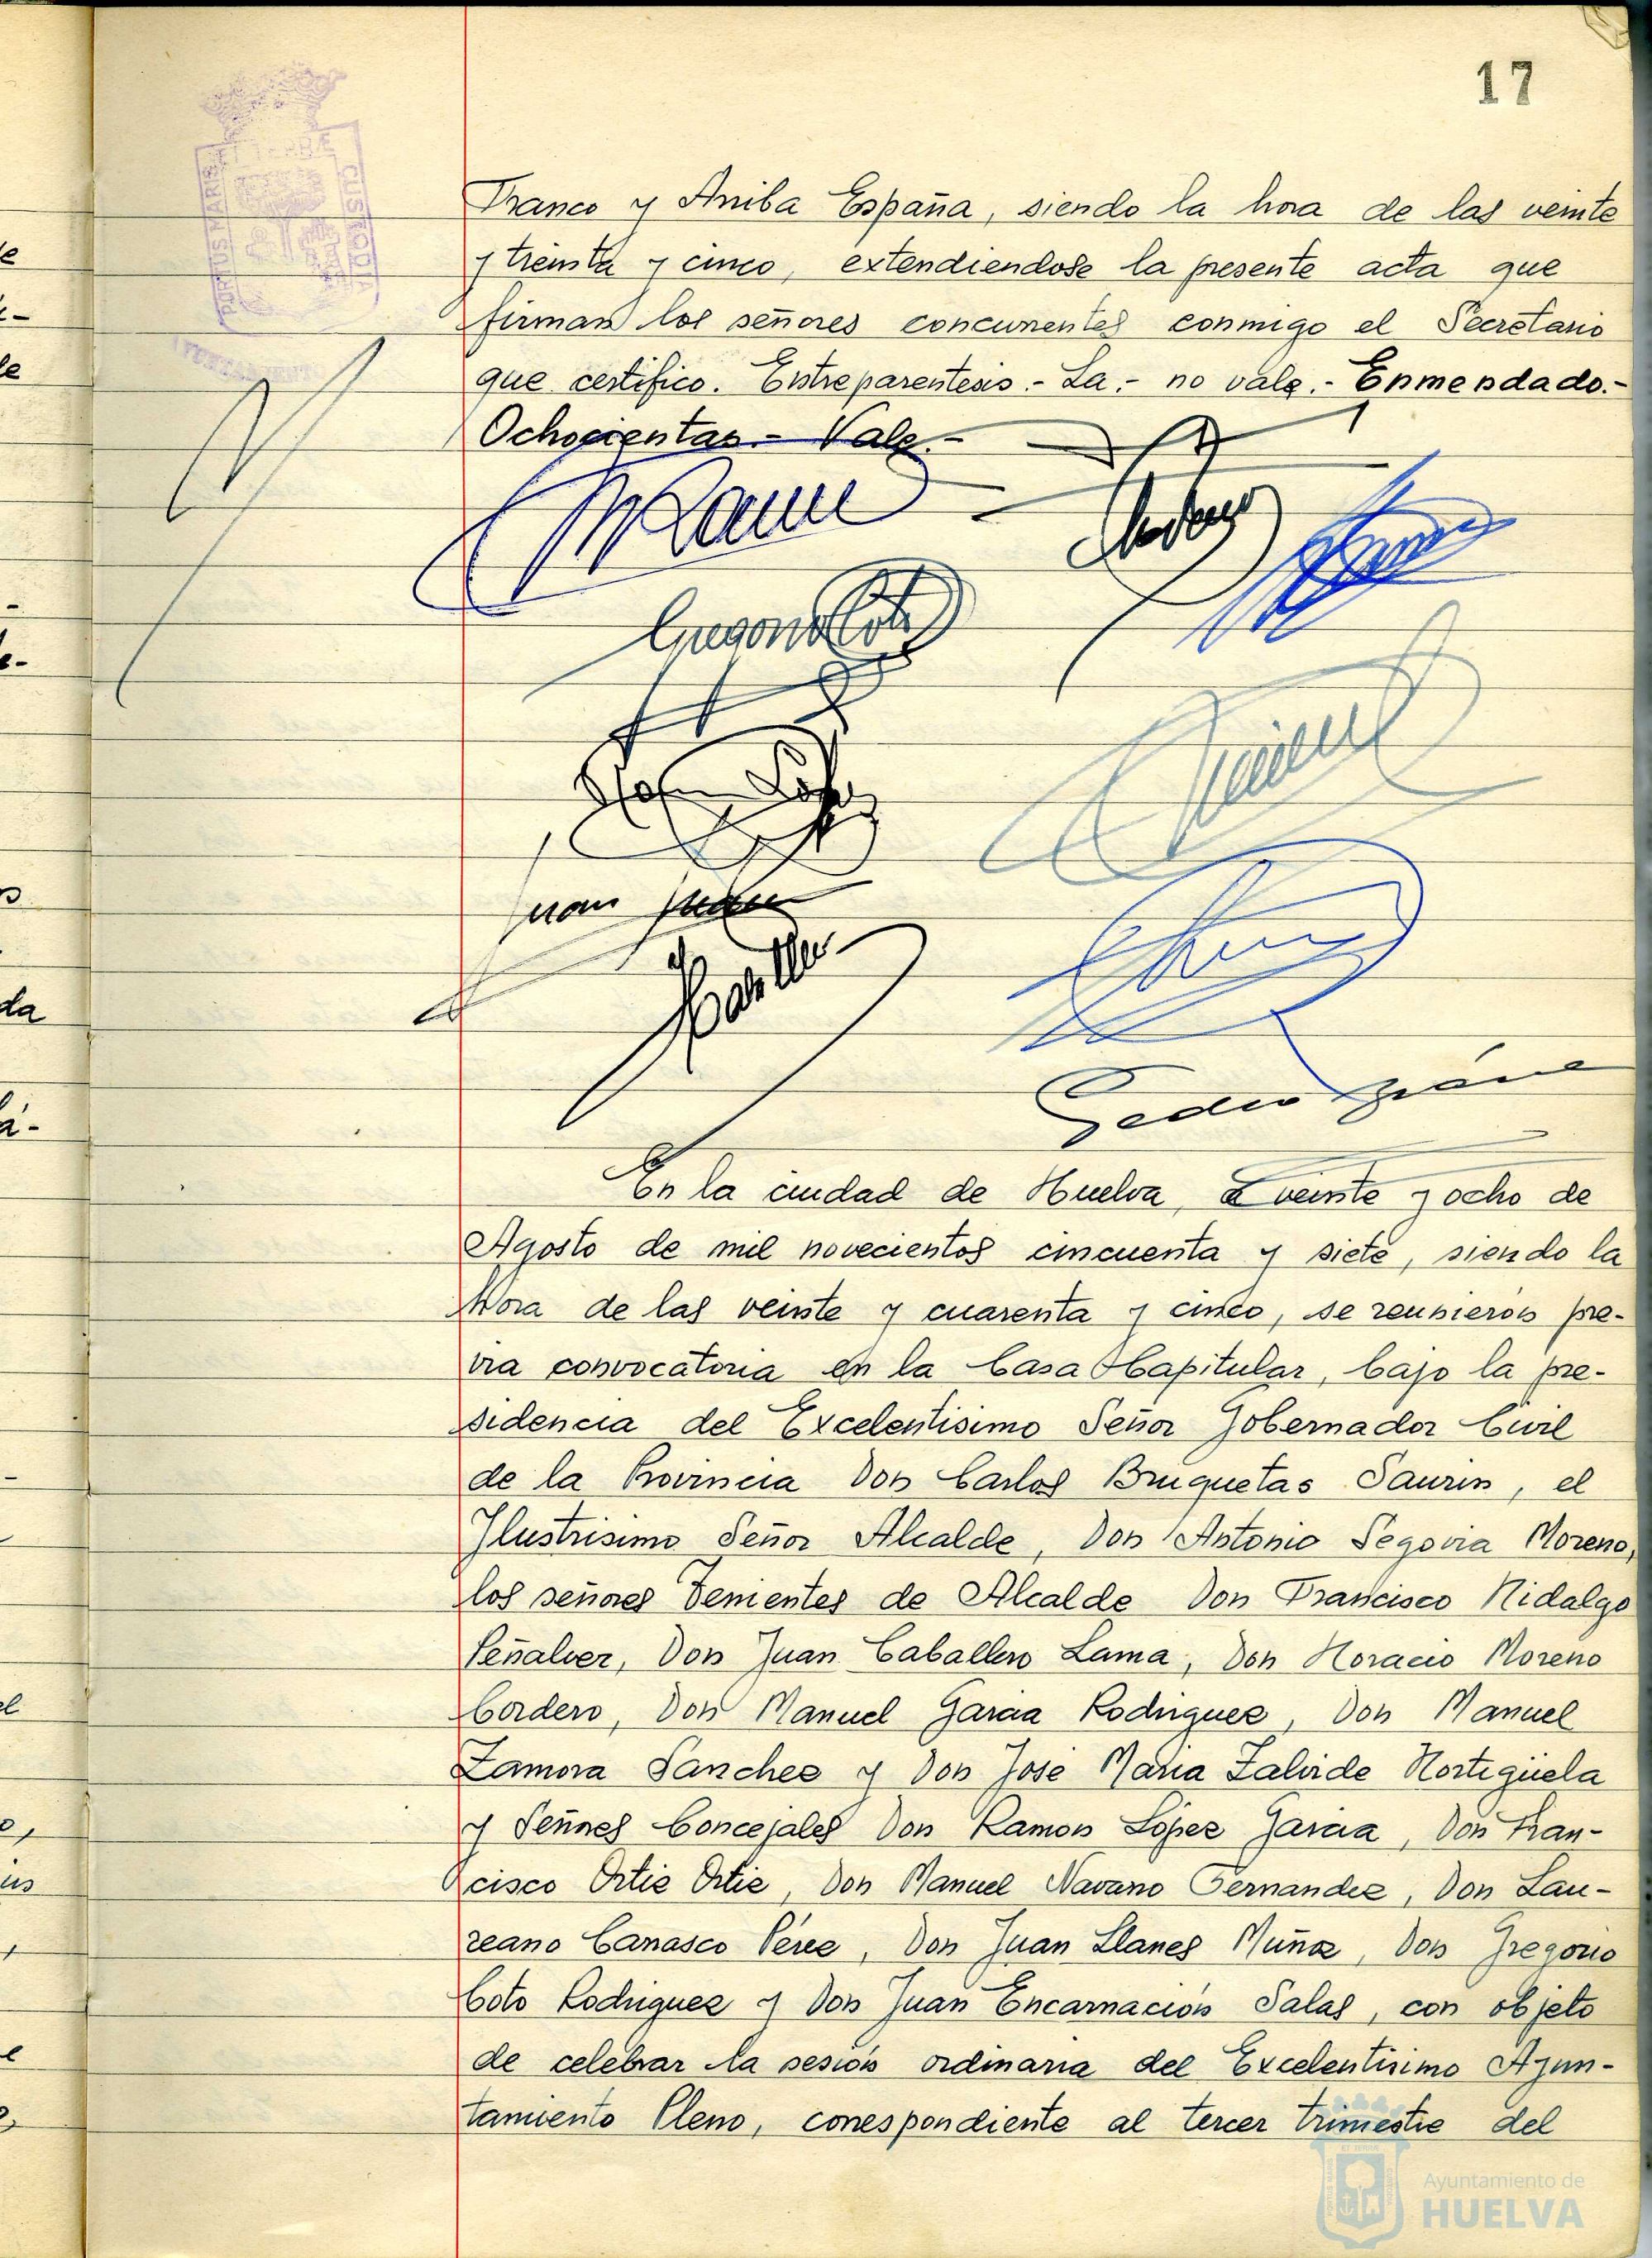 17
PORTUS MARIS ET TERRÆ CUSTODIA
AYUNTAMIENTO
Franco y Arriba España, siendo la hora de las veinte
y treinta y cinco, extendiendose la presente acta que
firman los señores concurrentes conmigo el Secretario
que certifico. Entreparentesis.- La.- no vale.- Enmendado.-
Ochocientas.- Vale.-
Gregorio Coto
Juan
Pedro
En la ciudad de Huelva, a veinte y ocho de
Agosto de mil novecientos cincuenta y siete, siendo la
hora de las veinte y cuarenta y cinco, se reunieron pre-
via convocatoria en la Casa Capitular, bajo la pre-
sidencia del Excelentisimo Señor Gobernador Civil
de la Provincia Don Carlos Bruquetas Saurin, el
Ilustrisimo Señor Alcalde, Don Antonio Segovia Moreno,
los señores Tenientes de Alcalde Don Francisco Hidalgo
Peñalver, Don Juan Caballero Lama, Don Horacio Moreno
Cordero, Don Manuel Garcia Rodriguez, Don Manuel
Zamora Sanchez y Don Jose Maria Zalvide Hortigüela
y Señores Concejales Don Ramon López Garcia, Don Fran-
cisco Ortiz Ortiz, Don Manuel Navarro Fernandez, Don Lau-
reano Carrasco Pérez, Don Juan Llanes Muñoz, Don Gregorio
Coto Rodriguez y Don Juan Encarnación Salas, con objeto
de celebrar la sesión ordinaria del Excelentisimo Ayun-
tamiento Pleno, correspondiente al tercer trimestre del
Ayuntamiento de
HUELVA